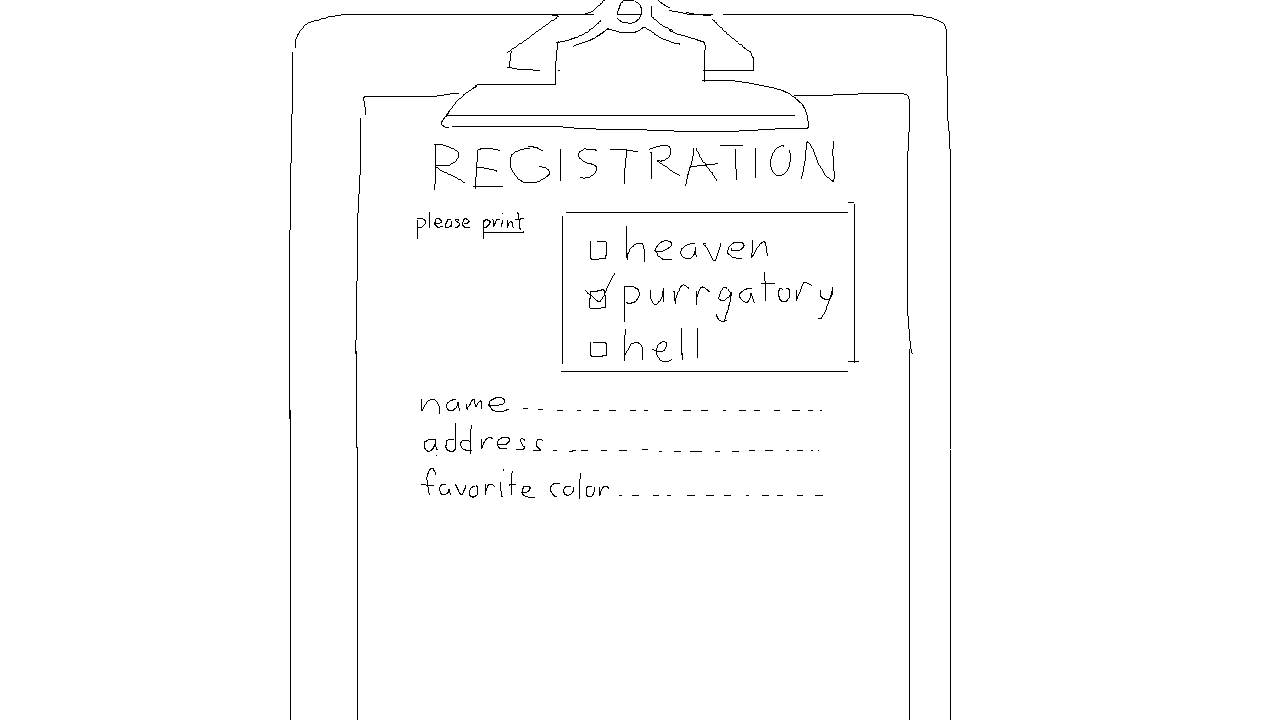 REGISTRATION
please print
heaven
purrgatory
hell
name
address
favorite color